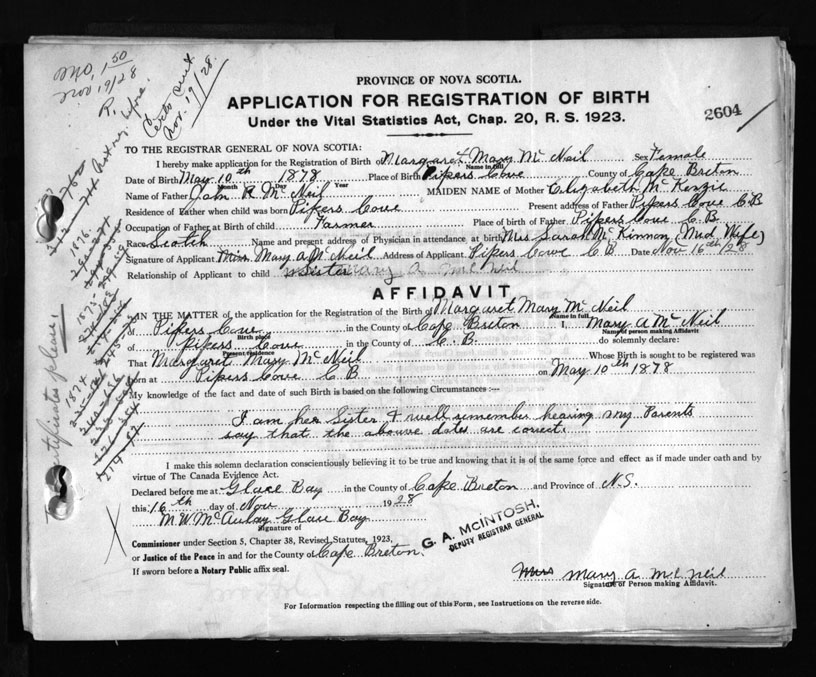 MO, 1.50
Nov 19/28
R.
Certs sent
Nov. 19/28.
PROVINCE OF NOVA SCOTIA.
APPLICATION FOR REGISTRATION OF BIRTH
Under the Vital Statistics Act, Chap. 20, R. S. 1923.
2604
TO THE REGISTRAR GENERAL OF NOVA SCOTIA:
I hereby make application for the Registration of Birth of Margaret Mary McNeil Sex Female
Name in full
Date of Birth May 10th 1878 Place of Birth Pipers Cove County of Cape Breton
Month Day Year
Name of Father John R McNeil MAIDEN NAME of Mother Elizabeth McKenzie
Residence of Father when child was born Pipers Cove Present address of Father Pipers Cove C B
Occupation of Father at Birth of child Farmer Place of birth of Father Pipers Cove C. B.
Race Scotch Name and present address of Physician in attendance at birth Mrs Sarah McKinnon (Mid Wife)
Signature of Applicant Miss Mary A McNeil Address of Applicant Pipers Cove C B Date Nov 16th/28
Relationship of Applicant to child Sister Mary A McNeil
AFFIDAVIT
IN THE MATTER of, the application for the Registration of the Birth of Margaret Mary McNeil
Name in full
of Pipers Cove in the County of Cape Breton I, Mary A McNeil
Birth place Name of person making Affidavit
of Pipers Cove in the County of C. B. do solemnly declare:
Present residence
That Margaret Mary McNeil Whose Birth is sought to be registered was
born at Pipers Cove C B on May 10th 1878
My knowledge of the fact and date of such Birth is based on the following Circumstances :—
I am her Sister & well remember hearing my Parents
say that the above dates are correct.
I make this solemn declaration conscientiously believing it to be true and knowing that it is of the same force and effect as if made under oath and by
virtue of The Canada Evidence Act.
Declared before me at Glace Bay in the County of Cape Breton and Province of N.S.
this 16th day of Nov 1928
M. W. McAulay Glace Bay
Signature of
G. A. McINTOSH,
DEPUTY REGISTRAR GENERAL
Commissioner under Section 5, Chapter 38, Revised Statutes, 1923,
or Justice of the Peace in and for the County of Cape Breton
If sworn before a Notary Public affix seal.
Mrs Mary A McNeil
Signature of Person making Affidavit.
For Information respecting the filling out of this Form, see Instructions on the reverse side.
Certificate please,